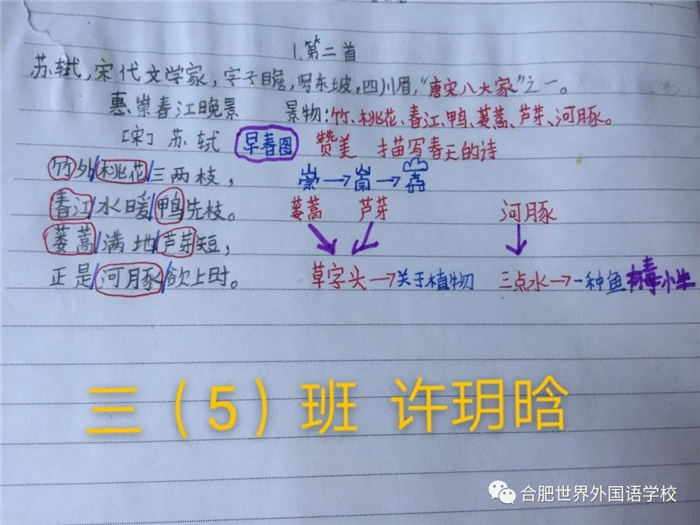 1.第二首
苏轼,宋代文学家,字子瞻,号东坡,四川眉,“唐宋八大家”之一。
惠崇春江晚景 景物:竹、桃花、春江、鸭、蒌蒿、芦芽、河豚。
[宋] 苏轼 早春图 赞美 描写春天的诗
竹外/桃花/三两枝,
春江/水暖/鸭先枝。
蒌蒿/满地/芦芽短,
正是/河豚/欲上时。
蒌蒿 芦芽 河豚
草字头→关于植物 三点水→一种鱼 有毒小
三(5)班 许玥晗
合肥世界外国语学校